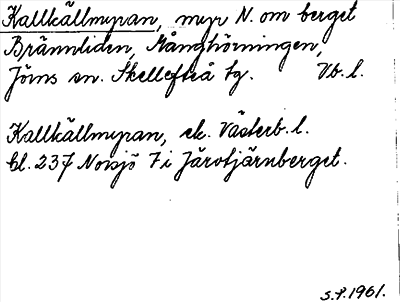 Kallkällmyran, myr N. om berget
Brännliden, Mångbörningen,
Jörns sn. Skellefteå tg. Vb. l.
Kallkällmyran, ek. Västerb. l.
bl. 237 Norsjö 7 i Järvtjärnberget.
S.P. 1961.